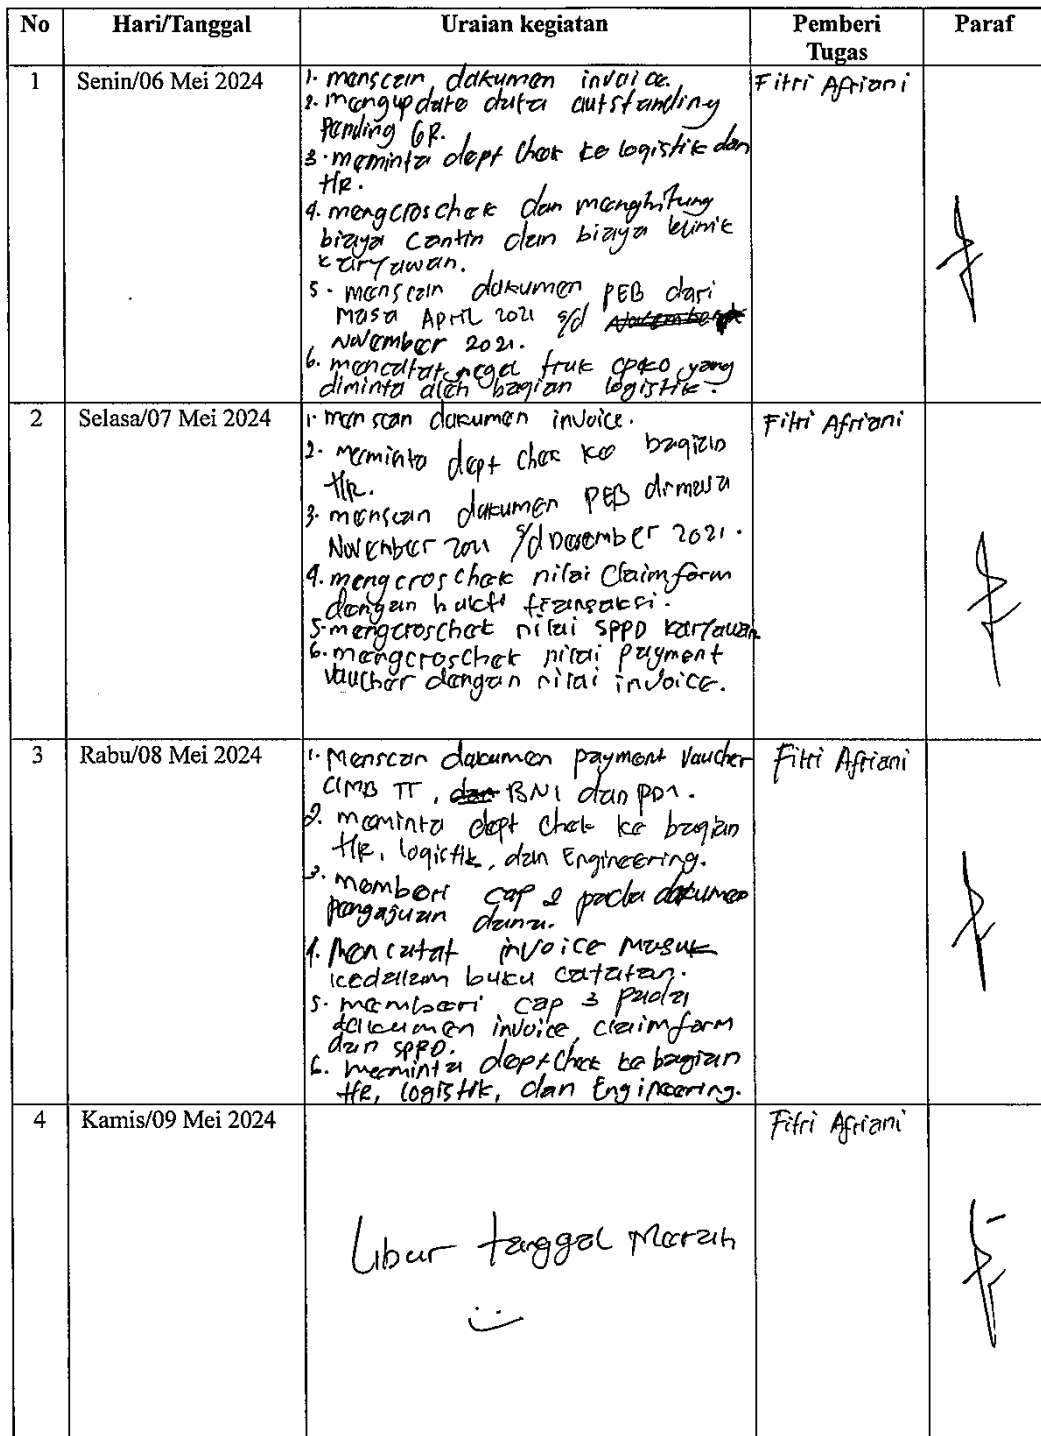 No Hari/Tanggal Uraian kegiatan Pemberi Tugas Paraf
1 Senin/06 Mei 2024 Fitri Afriani
1. menscan dokumen invoice.
2. mengupdate data outstanding
Pending GR.
3. meminta dept chek ke logistik dan
HR.
4. mengcroschek dan menghitung
biaya cantin dan biaya klinik
karyawan.
5. menscan dokumen PEB dari
Masa April 2021 s/d
November 2021.
6. mencatat segel truk CPKO yang
diminta oleh bagian logistik.
2 Selasa/07 Mei 2024 Fitri Afriani
1. menscan dokumen invoice.
2. meminta dept chek ke bagian
HR.
3. menscan dokumen PEB dimasa
November 2021 s/d Desember 2021.
4. mengcroschek nilai Claimform
dengan bukti transaksi.
5. mengcroschek nilai SPPD karyawan
6. mengcroschek nilai payment
Vaucher dengan nilai invoice.
3 Rabu/08 Mei 2024 Fitri Afriani
1. Menscan dokumen payment Vaucher
CIMB TT, dan BNI dan PD1.
2. meminta dept chek ke bagian
HR, logistik, dan Engineering.
3. memberi cap 2 pada dokumen
pengajuan dana.
4. Mencatat invoice masuk
kedalam buku catatan.
5. memberi cap 3 pada
dokumen invoice, claimform
dan SPPD.
6. meminta dept chek ke bagian
HR, logistik, dan Engineering.
4 Kamis/09 Mei 2024 Fitri Afriani
Libur tanggal Merah